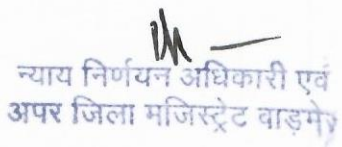 न्याय निर्णयन अधिकारी एवं
अपर जिला मजिस्ट्रेट बाड़मेर